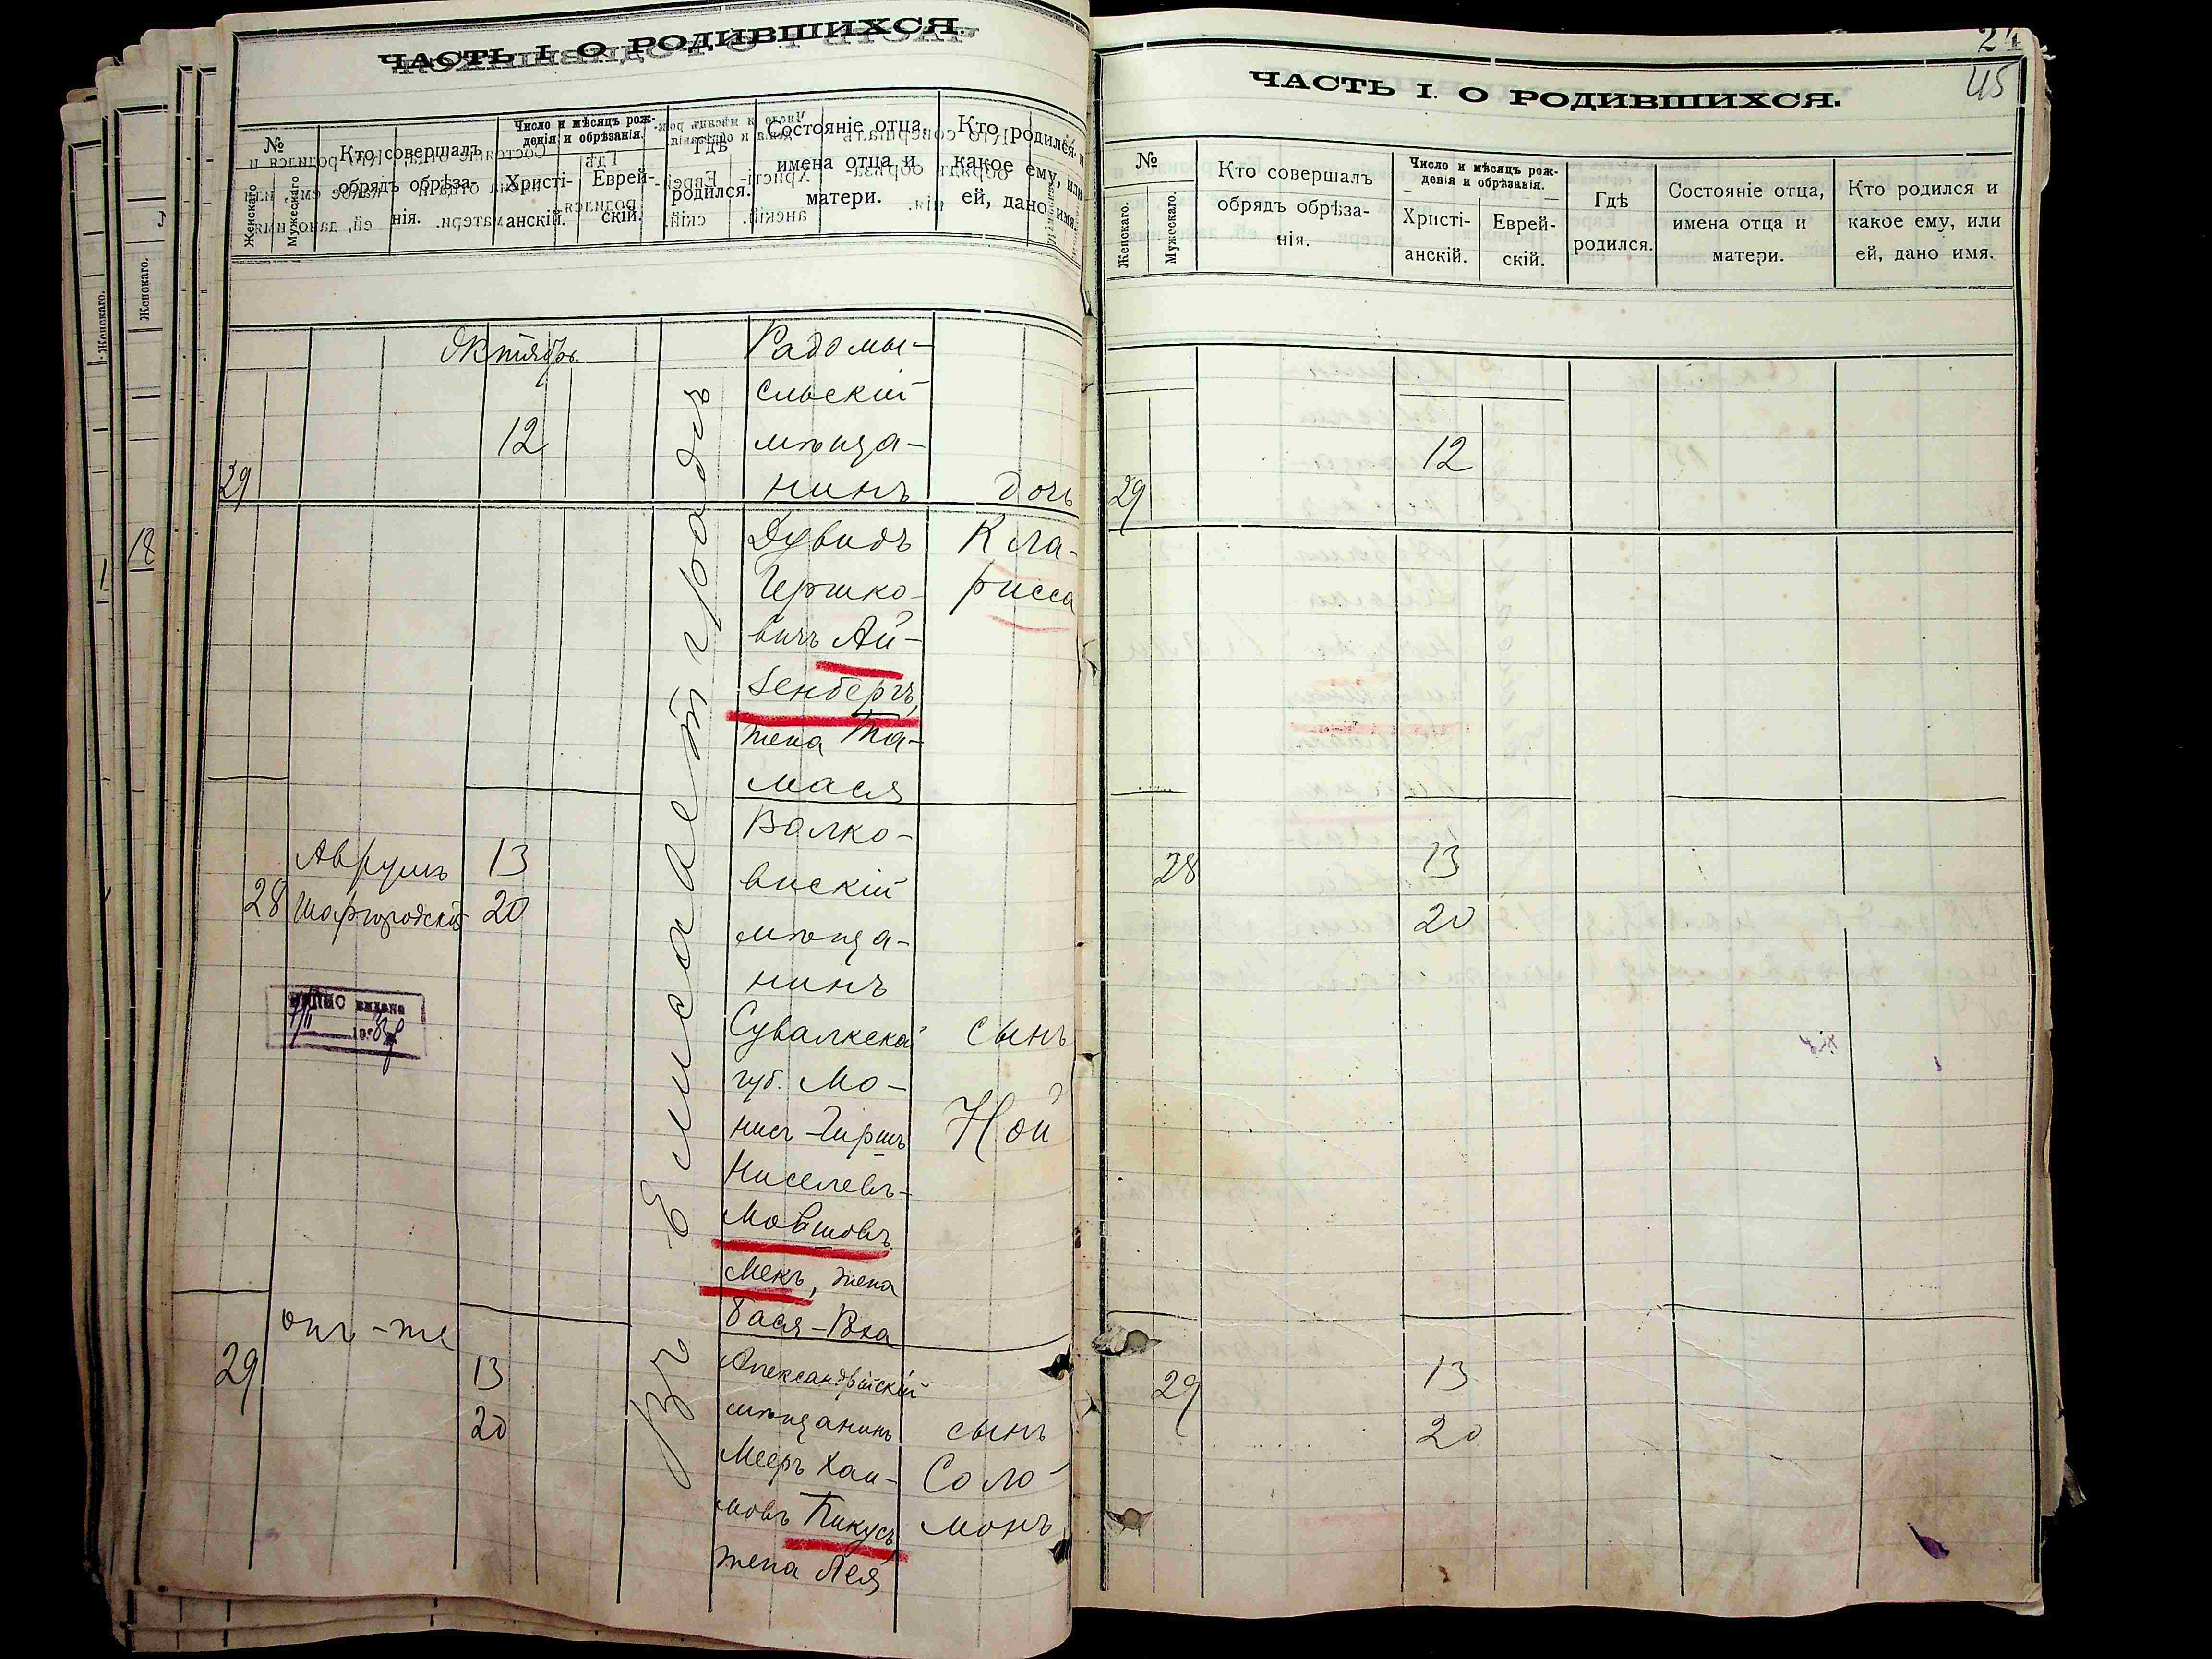 ЧАСТЬ I. О РОДИВШИХСЯ.
№
Женскаго
Мужескаго
Кто совершалъ
обрядъ обрѣза-
нія.
Число и мѣсяцъ рож-
денія и обрѣзанія.
Христі-
анскій.
Еврей-
скій.
Гдѣ
родился.
Состояніе отца,
имена отца и
матери.
Кто родился и
какое ему, или
ей, дано имя.
Октябрь
29
12
Въ Елисаветградѣ
Радомы-
сльскій
мѣща-
нинъ
Дувидъ
Гершко-
вичъ Ай-
зенбергъ,
жена Та-
мася
дочь
Кла-
рисса
28
Аврумъ
Шаргородскій
13
20
Волко-
вискій
мѣща-
нинъ
Сувалкской
губ. Мо-
нисъ-Гиршъ
Ниселевъ-
Мовшовъ
Мекъ, жена
Бася-Рва
сынъ
Ной
выдана
29
онъ-же
13
20
Александрійскій
мѣщанинъ
Мееръ Хаи-
мовъ Пикусъ,
жена Лея
сынъ
Соло-
монъ
24
45
ЧАСТЬ I. О РОДИВШИХСЯ.
№
Женскаго.
Мужескаго.
Кто совершалъ
обрядъ обрѣза-
нія.
Число и мѣсяцъ рож-
денія и обрѣзанія.
Христі-
анскій.
Еврей-
скій.
Гдѣ
родился.
Состояніе отца,
имена отца и
матери.
Кто родился и
какое ему, или
ей, дано имя.
29
12
28
13
20
29
13
20
Женскаго.
Женскаго.
18